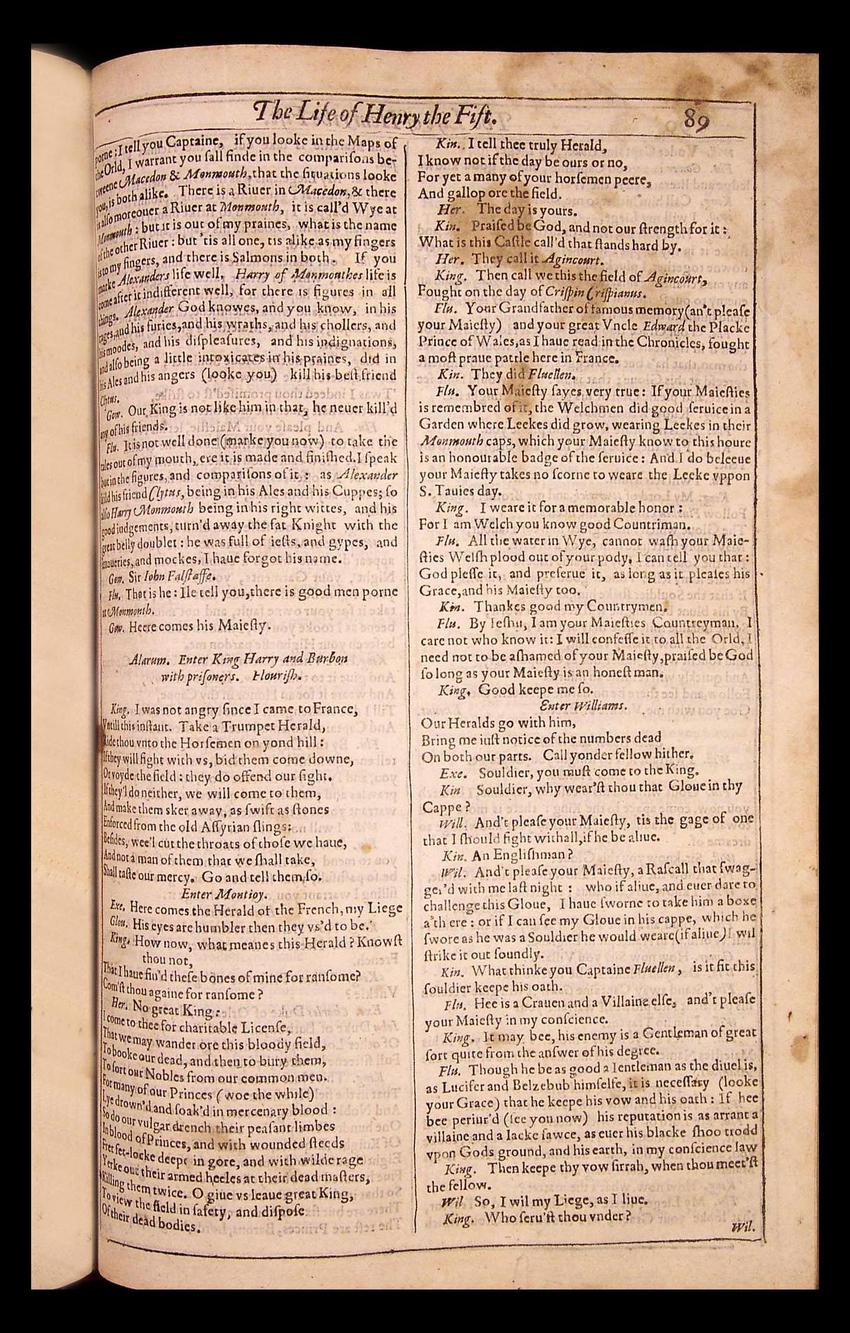 The Life of Henry the Fift.
89
porne: I tell you Captaine, if you looke in the Maps of
the Orld, I warrant you sall finde in the comparisons be-
tweene Macedon & Monmouth, that the situations looke
you, is both alike. There is a Riuer in Macedon, & there
is also moreouer a Riuer at Monmouth, it is call'd Wye at
Monmouth: but it is out of my praines, what is the name
of the other Riuer: but 'tis all one, tis alike as my fingers
is to my fingers, and there is Salmons in both. If you
marke Alexanders life well, Harry of Monmouthes life is
come after it indifferent well, for there is figures in all
things. Alexander God knowes, and you know, in his
rages, and his furies, and his wraths, and his chollers, and
his moodes, and his displeasures, and his indignations,
and also being a little intoxicates in his praines, did in
his Ales and his angers (looke you) kill his best friend
Clytus.
Gow. Our King is not like him in that, he neuer kill'd
any of his friends.
Flu. It is not well done (marke you now) to take the
tales out of my mouth, ere it is made and finished. I speak
but in the figures, and comparisons of it: as Alexander
kild his friend Clytus, being in his Ales and his Cuppes; so
also Harry Monmouth being in his right wittes, and his
good iudgements, turn'd away the fat Knight with the
great belly doublet: he was full of iests, and gypes, and
knaueries, and mockes, I haue forgot his name.
Gow. Sir Iohn Falstaffe.
Flu. That is he: Ile tell you, there is good men porne
at Monmouth.
Gow. Heere comes his Maiesty.
Alarum. Enter King Harry and Burbon
with prisoners. Flourish.
King. I was not angry since I came to France,
Vntill this instant. Take a Trumpet Herald,
Ride thou vnto the Horsemen on yond hill:
If they will fight with vs, bid them come downe,
Or voyde the field: they do offend our sight.
If they'l do neither, we will come to them,
And make them sker away, as swift as stones
Enforced from the old Assyrian slings:
Besides, wee'l cut the throats of those we haue,
And not a man of them that we shall take,
Shall taste our mercy. Go and tell them so.
Enter Montioy.
Exe. Here comes the Herald of the French, my Liege
Glou. His eyes are humbler then they vs'd to be.
King. How now, what meanes this Herald? Knowst
thou not,
That I haue fin'd these bones of mine for ransome?
Com'st thou againe for ransome?
Her. No great King:
I come to thee for charitable License,
That we may wander ore this bloody field,
To booke our dead, and then to bury them,
To sort our Nobles from our common men.
For many of our Princes (woe the while)
Lye drown'd and soak'd in mercenary blood:
So do our vulgar drench their peasant limbes
In blood of Princes, and with wounded steeds
Fret set-locke deepe in gore, and with wilde rage
Yerke out their armed heeles at their dead masters,
Killing them twice. O giue vs leaue great King,
To view the field in safety, and dispose
Of their dead bodies.
Kin. I tell thee truly Herald,
I know not if the day be ours or no,
For yet a many of your horsemen peere,
And gallop ore the field.
Her. The day is yours.
Kin. Praised be God, and not our strength for it:
What is this Castle call'd that stands hard by.
Her. They call it Agincourt.
King. Then call we this the field of Agincourt,
Fought on the day of Crispin Crispianus.
Flu. Your Grandfather of famous memory (an't please
your Maiesty) and your great Vncle Edward the Placke
Prince of Wales, as I haue read in the Chronicles, fought
a most praue pattle here in France.
Kin. They did Fluellen.
Flu. Your Maiesty sayes very true: If your Maiesties
is remembred of it, the Welchmen did good seruice in a
Garden where Leekes did grow, wearing Leekes in their
Monmouth caps, which your Maiesty know to this houre
is an honourable badge of the seruice: And I do beleeue
your Maiesty takes no scorne to weare the Leeke vppon
S. Tauies day.
King. I weare it for a memorable honor:
For I am Welch you know good Countriman.
Flu. All the water in Wye, cannot wash your Maie-
sties Welsh plood out of your pody, I can tell you that:
God plesse it, and preserue it, as long as it pleases his
Grace, and his Maiesty too.
Kin. Thankes good my Countrymen.
Flu. By Ieshu, I am your Maiesties Countreyman, I
care not who know it: I will confesse it to all the Orld, I
need not to be ashamed of your Maiesty, praised be God
so long as your Maiesty is an honest man.
King. Good keepe me so.
Enter Williams.
Our Heralds go with him,
Bring me iust notice of the numbers dead
On both our parts. Call yonder fellow hither.
Exe. Souldier, you must come to the King.
Kin Souldier, why wear'st thou that Gloue in thy
Cappe?
Will. And't please your Maiesty, tis the gage of one
that I should fight withall, if he be aliue.
Kin. An Englishman?
Wil. And't please your Maiesty, a Rascall that swag-
ger'd with me last night: who if aliue, and euer dare to
challenge this Gloue, I haue sworne to take him a boxe
a'th ere: or if I can see my Gloue in his cappe, which he
swore as he was a Souldier he would weare (if aliue) I wil
strike it out soundly.
Kin. What thinke you Captaine Fluellen, is it fit this
souldier keepe his oath.
Flu. Hee is a Crauen and a Villaine else, and't please
your Maiesty in my conscience.
King. It may bee, his enemy is a Gentleman of great
sort quite from the answer of his degree.
Flu. Though he be as good a Ientleman as the diuel is,
as Lucifer and Belzebub himselfe, it is necessary (looke
your Grace) that he keepe his vow and his oath: If hee
bee periur'd (see you now) his reputation is as arrant a
villaine and a Iacke sawce, as euer his blacke shoo trodd
vpon Gods ground, and his earth, in my conscience law
King. Then keepe thy vow sirrah, when thou meet'st
the fellow.
Wil. So, I wil my Liege, as I liue.
King. Who seru'st thou vnder?
Wil.